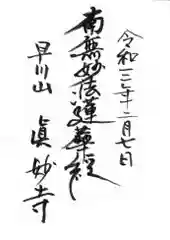 令和三年二月七日
南無妙法蓮華経
早川山 眞妙寺